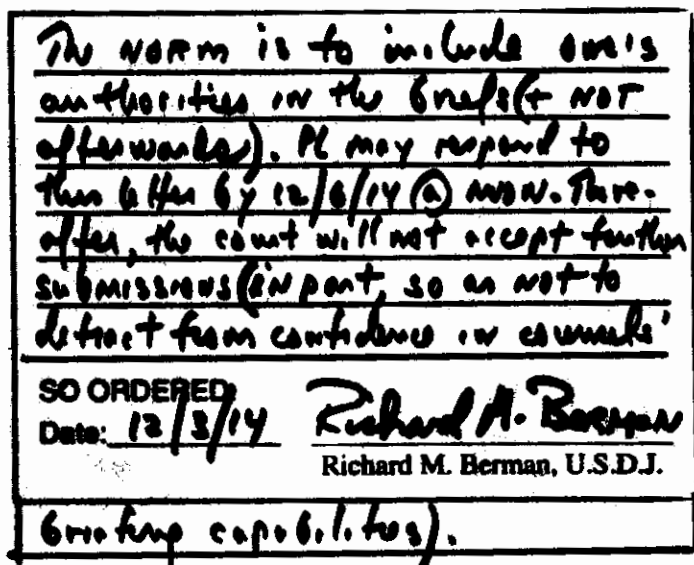 The NORM is to include one's
authorities in the briefs (+ NOT
afterwards). Pl may respond to
this letter by 12/6/14 @ NOON. There-
after, the court will not accept further
submissions (in part, so as not to
detract from confidence in counsels'
SO ORDERED:
Date: 12/3/14 Richard M. Berman
Richard M. Berman, U.S.D.J.
briefing capabilities).